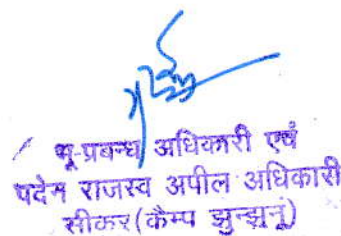 भू-प्रबन्ध अधिकारी एवं
पदेन राजस्व अपील अधिकारी
सीकर (कैम्प झुन्झुनूं)